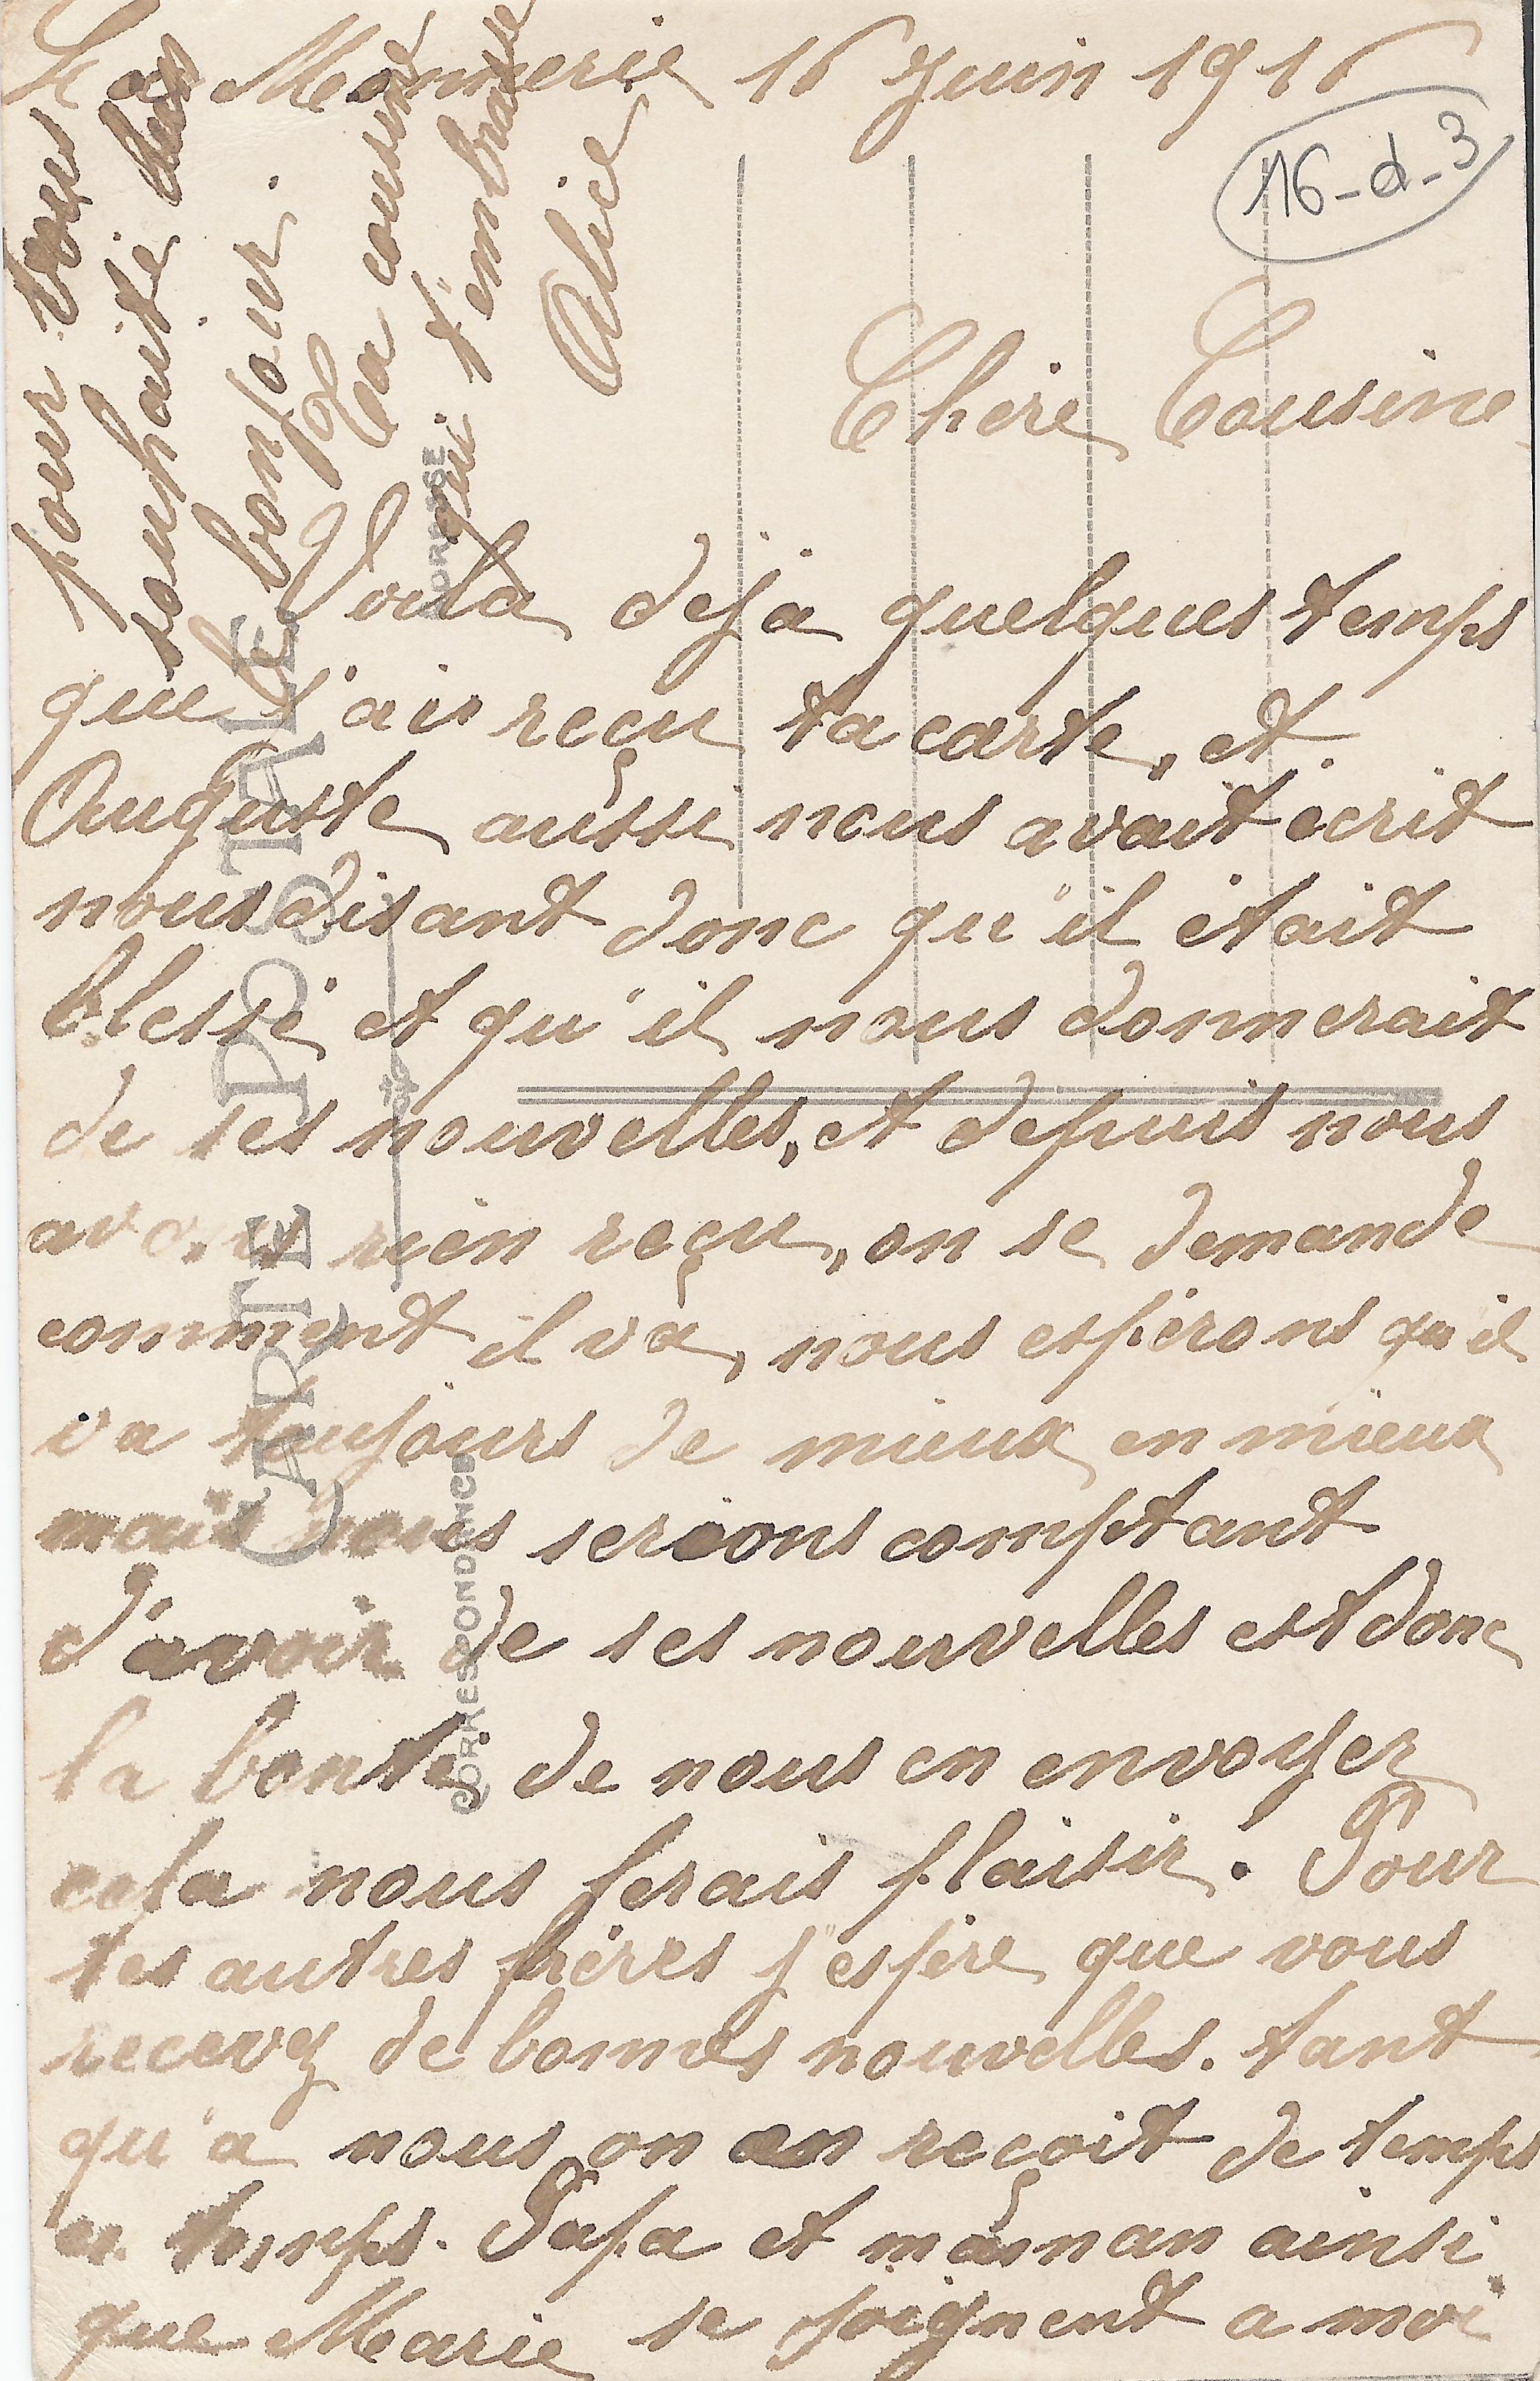 La Monnerie 16 Juin 1916
16-d-3
Chère Cousine
Voila deja quelques temps
que j'ais reçu ta carte, et
Auguste aussi nous avait écrit
nous disant donc qu'il était
blessé et qu'il nous donnerait
de ses nouvelles, et depuis nous
avons rien reçu, on se demande
comment il va, nous espérons qu'il
va toujours de mieux en mieux
mais nous serions comptant
d'avoir de ses nouvelles est donc
la bonté de nous en envoyer
cela nous ferais plaisir. Pour
tes autres frères j'espère que vous
recevez de bonnes nouvelles. tant
qu'a nous on en reçoit de temps
en temps. Papa et maman ainsi
que Marie se joignent a moi
pour vous
souhaité bien
le bonjour.
Ta cousine
qui t'embrasse
Alice
CARTE POSTALE
CORRESPONDANCE
ADRESSE